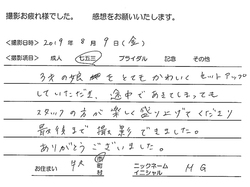 撮影お疲れ様でした。 感想をお願いいたします。
<撮影日時> 2019年 8月 9日(金)
<撮影項目> 成人 七五三 ブライダル 記念 その他
3才の娘をとてもかわいくセットアップ
していただき、途中であきてしまっても
スタッフの方が楽しく盛り上げてくださり
最後まで撮影できました。
ありがとうございました。
お住まい 町 村 ニックネーム イニシャル M G